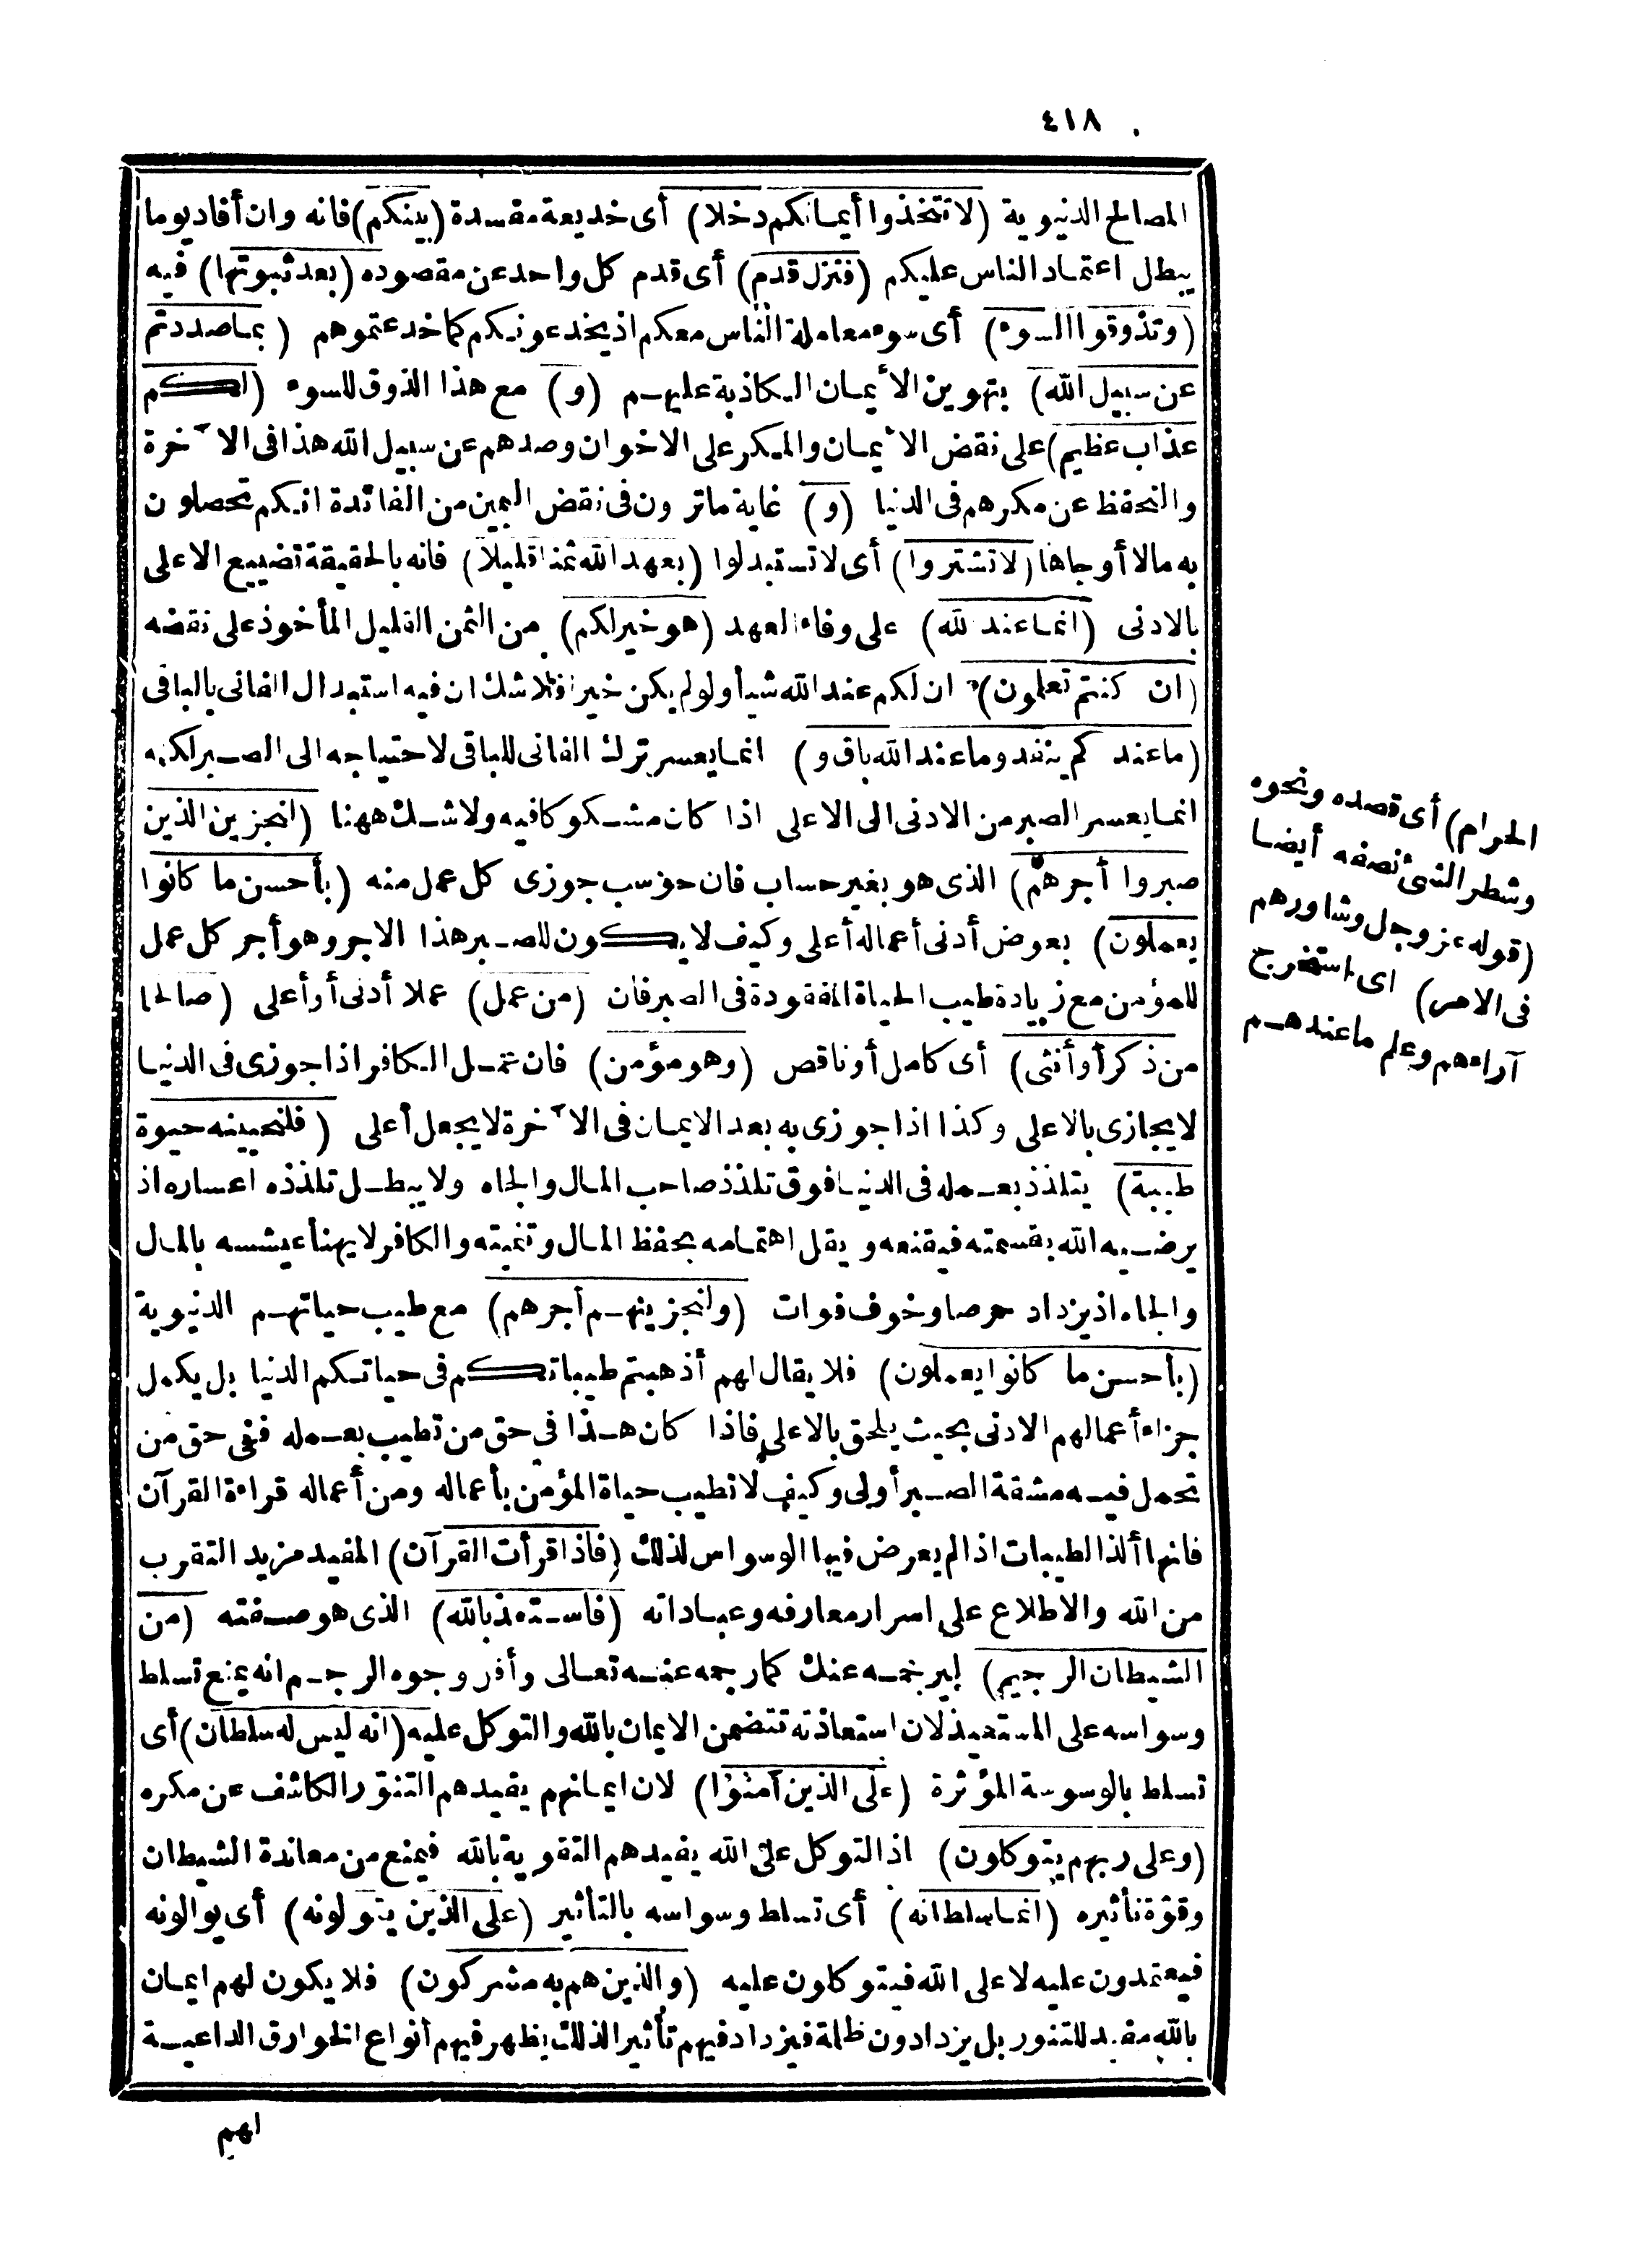 ٤١٨
المصالح الدنيوية (لاتتخذوا أيمانكم دخلا) أى خديعة مفسدة (بينكم) فانه وان أفاد يوما
يبطل اعتماد الناس عليكم (فتزل قدم) أى قدم كل واحد عن مقصوده (بعد ثبوتها) فيه
(وتذوقوا السوء) أى سوء معاملة الناس معكم اذ يخدعونكم كما خدعتموهم (بما صددتم
عن سبيل الله) بتهوين الأيمان الكاذبة عليهم (و) مع هذا الذوق للسوء (لكم
عذاب عظيم) على نقض الأيمان والمكر على الاخوان وصدهم عن سبيل الله هذا فى الآخرة
والتحفظ عن مكرهم فى الدنيا (و) غاية ماترون فى نقض اليمين من الفائدة انكم تحصلون
به مالا أو جاها (لاتشتروا) أى لاتستبدلوا (بعهد الله ثمنا قليلا) فانه بالحقيقة تضييع الاعلى
بالادنى (انما عند الله) على وفاء العهد (هو خير لكم) من الثمن القليل المأخوذ على نقضه
(ان كنتم تعلمون) ان لكم عند الله شيأ ولو لم يكن خيرا فلا شك ان فيه استبدال الفانى بالباقى
(ما عندكم ينفد وما عند الله باق و) انما يعسر ترك الفانى للباقى لاحتياجه الى الصبر لكنه
انما يعسر الصبر من الادنى الى الاعلى اذا كان مشكوكا فيه ولا شك ههنا (لنجزين الذين
صبروا أجرهم) الذى هو بغير حساب فان حوسب جوزى كل عمل منه (بأحسن ما كانوا
يعملون) بعوض أدنى أعماله أعلى وكيف لايكون للصبر هذا الاجر وهو أجر كل عمل
للمؤمن مع زيادة طيب الحياة المفقودة فى الصبر فان (من عمل) عملا أدنى أو أعلى (صالحا
من ذكر أو أنثى) أى كامل أو ناقص (وهو مؤمن) فان عمل الكافر اذا جوزى فى الدنيا
لا يجازى بالاعلى وكذا اذا جوزى به بعد الايمان فى الآخرة لايجعل أعلى (فلنحيينه حيوة
طيبة) يتلذذ بعمله فى الدنيا فوق تلذذ صاحب المال والجاه ولا يبطل تلذذه اعساره اذ
يرضيه الله بقسمته فيقنعه ويقل اهتمامه بحفظ المال وتنميته والكافر لايهنأ عيشه بالمال
والجاه اذ يزداد حرصا وخوف فوات (ولنجزينهم أجرهم) مع طيب حياتهم الدنيوية
(بأحسن ما كانوا يعملون) فلا يقال لهم أذهبتم طيباتكم فى حياتكم الدنيا بل يكمل
جزاء أعمالهم الادنى بحيث يلحق بالاعلى فاذا كان هذا فى حق من تطيب بعمله ففى حق من
تحمل فيه مشقة الصبر أولى وكيف لا تطيب حياة المؤمن بأعماله ومن أعماله قراءة القرآن
فانها ألذ الطيبات اذا لم يعرض فيها الوسواس لذلك (فاذا قرأت القرآن) المفيد مزيد التقرب
من الله والاطلاع على اسرار معارفه وعباداته (فاستعذ بالله) الذى هو صفته (من
الشيطان الرجيم) ليرجمه عنك كما رجمه عنه تعالى وأقر وجوه الرجم انه يمنع تسلط
وسواسه على المستعيذ لان استعاذته تتضمن الايمان بالله والتوكل عليه (انه ليس له سلطان) أى
تسلط بالوسوسة المؤثرة (على الذين آمنوا) لان ايمانهم يفيدهم التنور الكاشف عن مكره
(وعلى ربهم يتوكلون) اذ التوكل على الله يفيدهم التقوية بالله فيمنع من معاندة الشيطان
وقوة تأثيره (انما سلطانه) أى تسلط وسواسه بالتأثير (على الذين يتولونه) أى يوالونه
فيعتمدون عليه لا على الله فيتوكلون عليه (والذين هم به مشركون) فلا يكون لهم ايمان
بالله مفيد للتنور بل يزدادون ظلمة فيزداد فيهم تأثير الذلك يظهر فيهم أنواع الخوارق الداعية
لهم
الحرام) أى قصده ونحوه
وشطر الشئ نصفه أيضا
(قوله عز وجل وشاورهم
فى الامر) اى استخرج
آراءهم وعلم ما عندهم